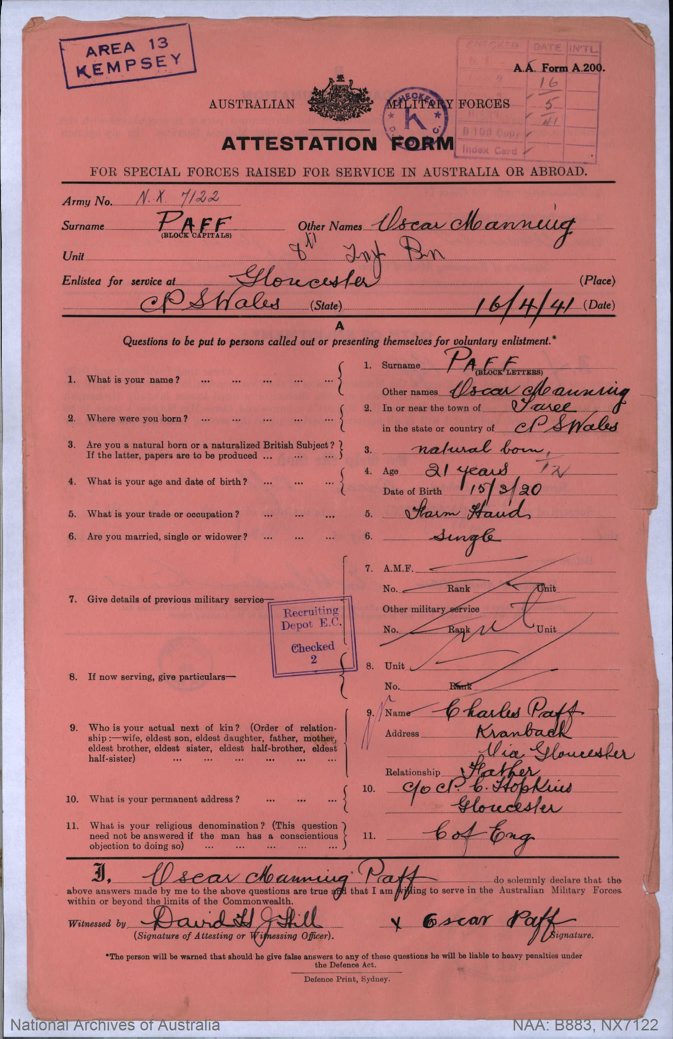 AREA 13
KEMPSEY
CHECKED DATE INT'L
16
5
41
B 103 Copy
Index Card
A.A. Form A.200.
AUSTRALIAN MILITARY FORCES
CHECKED
K
ATTESTATION FORM
FOR SPECIAL FORCES RAISED FOR SERVICE IN AUSTRALIA OR ABROAD.
Army No. N.X. 7122
Surname PAFF Other Names Oscar Manning
(BLOCK CAPITALS)
Unit Inf Bn
Enlisted for service at Gloucester (Place)
N S Wales (State) 16/4/41 (Date)
A
Questions to be put to persons called out or presenting themselves for voluntary enlistment.*
1. What is your name? ... ... ... ... ...
1. Surname PAFF
(BLOCK LETTERS)
Other names Oscar Manning
2. Where were you born? ... ... ... ... ...
2. In or near the town of Taree
in the state or country of N S Wales
3. Are you a natural born or a naturalized British Subject?
If the latter, papers are to be produced ... ... ...
3. natural born,
4. What is your age and date of birth? ... ... ...
4. Age 21 years
Date of Birth 15/3/20
5. What is your trade or occupation? ... ... ...
5. Farm Hand
6. Are you married, single or widower? ... ... ...
6. single
7. Give details of previous military service—
7. A.M.F.
No. Rank Unit
Other military service
No. Rank Unit
Recruiting
Depot E.C.
Checked
2
8. If now serving, give particulars—
8. Unit
No. Rank
9. Who is your actual next of kin? (Order of relation-
ship:—wife, eldest son, eldest daughter, father, mother,
eldest brother, eldest sister, eldest half-brother, eldest
half-sister) ... ... ... ... ... ...
9. Name Charles Paff
Address Kranback
Via Gloucester
Relationship Father
10. What is your permanent address? ... ... ...
10. c/o N. C. Hopkins
Gloucester
11. What is your religious denomination? (This question
need not be answered if the man has a conscientious
objection to doing so) ... ... ... ... ...
11. C of Eng
I, Oscar Manning Paff do solemnly declare that the
above answers made by me to the above questions are true and that I am willing to serve in the Australian Military Forces
within or beyond the limits of the Commonwealth.
Witnessed by David H J Hill x Oscar Paff
(Signature of Attesting or Witnessing Officer). Signature.
*The person will be warned that should he give false answers to any of these questions he will be liable to heavy penalties under
the Defence Act.
Defence Print, Sydney.
National Archives of Australia NAA: B883, NX7122